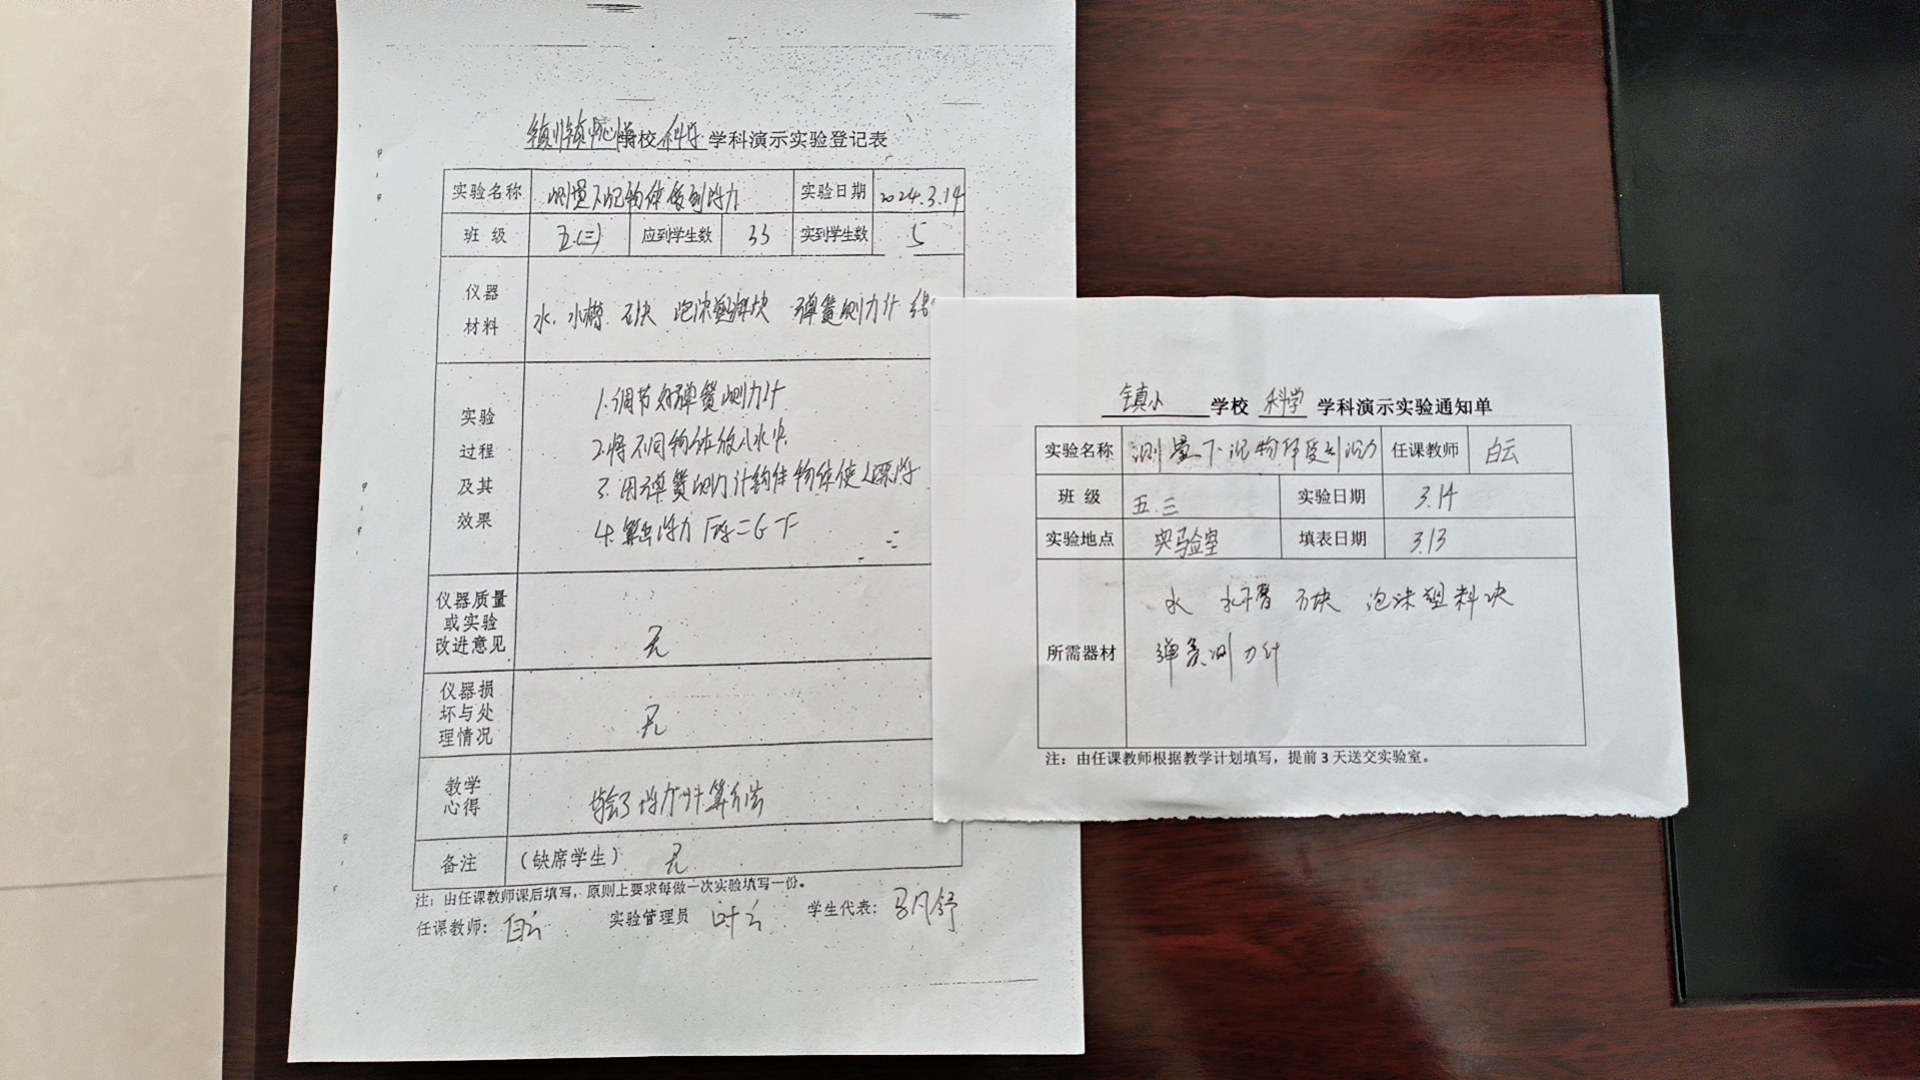 学校 科学 学科演示实验登记表
实验名称 测量下沉物体受到浮力 实验日期 2024.3.14
班 级 五(三) 应到学生数 33 实到学生数 5
仪器
材料
水. 水槽. 石块 泡沫塑料块 弹簧测力计
实验
过程
及其
效果
1.调节好弹簧测力计
2.将不同物体放入水中
3.用弹簧测力计钩住物体使
4.算出浮力 F浮=G-F
仪器质量
或实验
改进意见
无
仪器损
坏与处
理情况
无
教学
心得
学会了浮力的计算方法
备注 (缺席学生) 无
注:由任课教师课后填写,原则上要求每做一次实验填写一份。
任课教师: 白云 实验管理员 叶云 学生代表:
镇小 学校 科学 学科演示实验通知单
实验名称 测量下沉物体受到浮力 任课教师 白云
班 级 五.三 实验日期 3.14
实验地点 实验室 填表日期 3.13
所需器材
水 水槽 石块 泡沫塑料块
弹簧测力计
注:由任课教师根据教学计划填写,提前3天送交实验室。